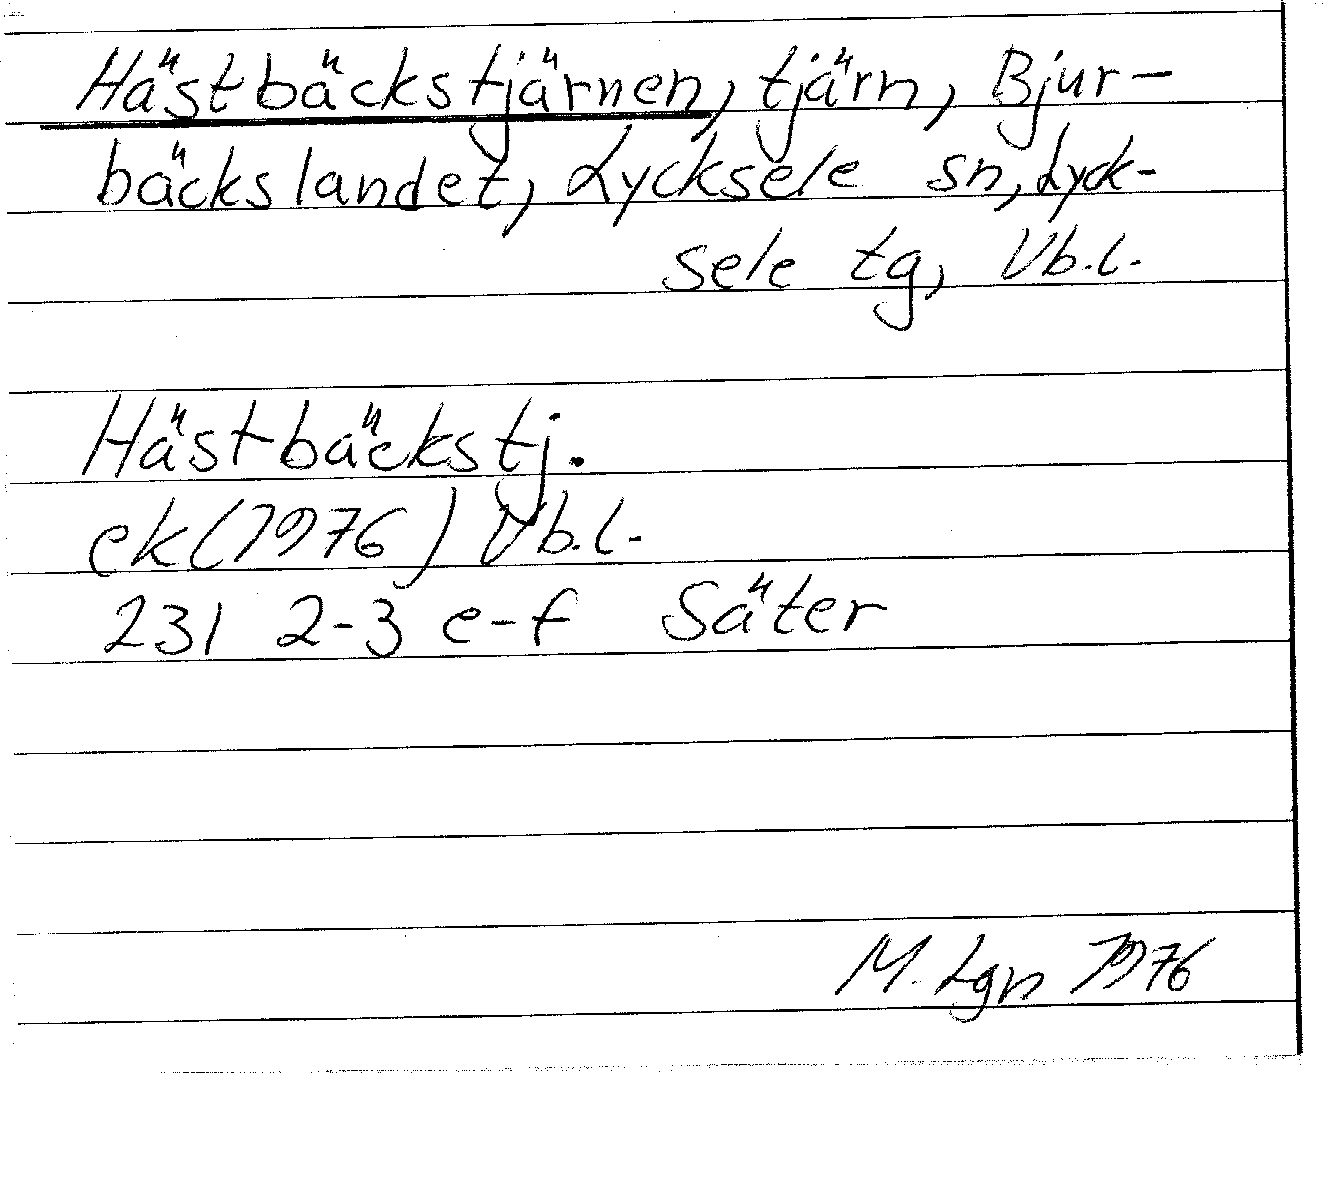 Hästbäckstjärnen, tjärn, Bjur-
bäckslandet, Lycksele sn, Lyck-
sele tg, Vb.l.
Hästbäckstj.
ek(1976) Vb.l.
231 2-3 e-f Säter
M. Lgn 1976